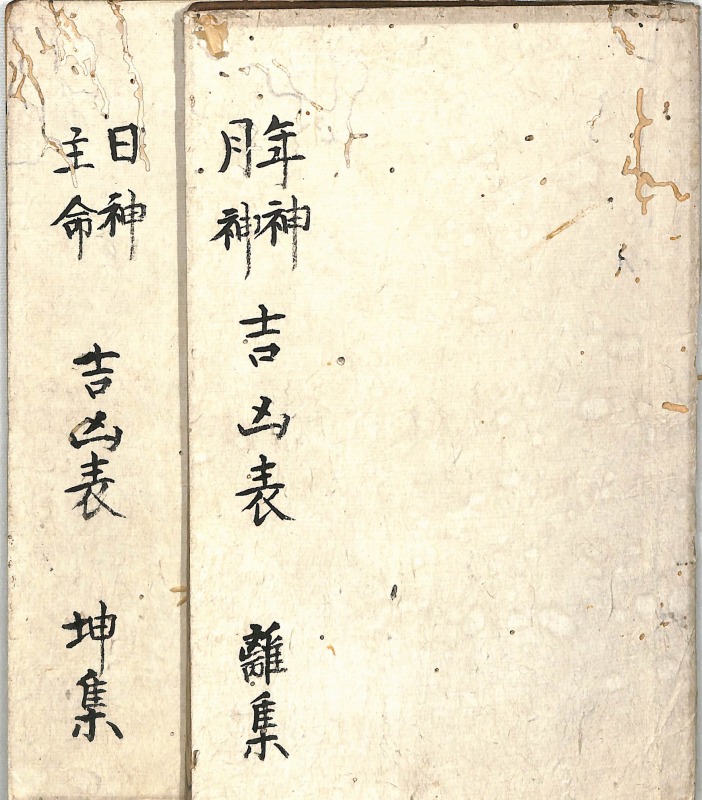 年神
月神
吉凶表 離集
日神
主命
吉凶表 坤集